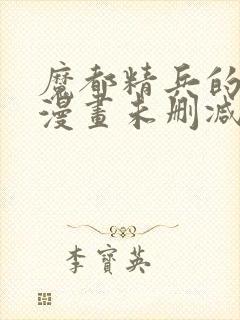 魔都精兵的
漫畫未删减
李寶英